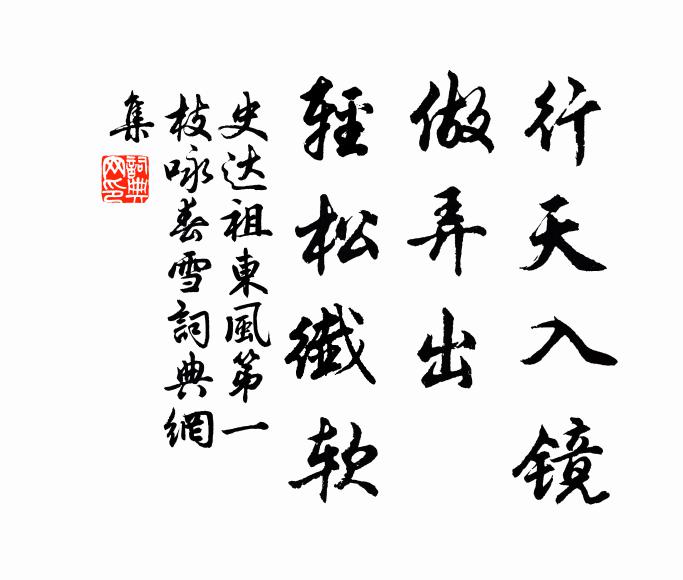 行天入镜
做弄出
輕松纖软
史达祖東風第一
枝咏春雪詞典網
集
詞典網印